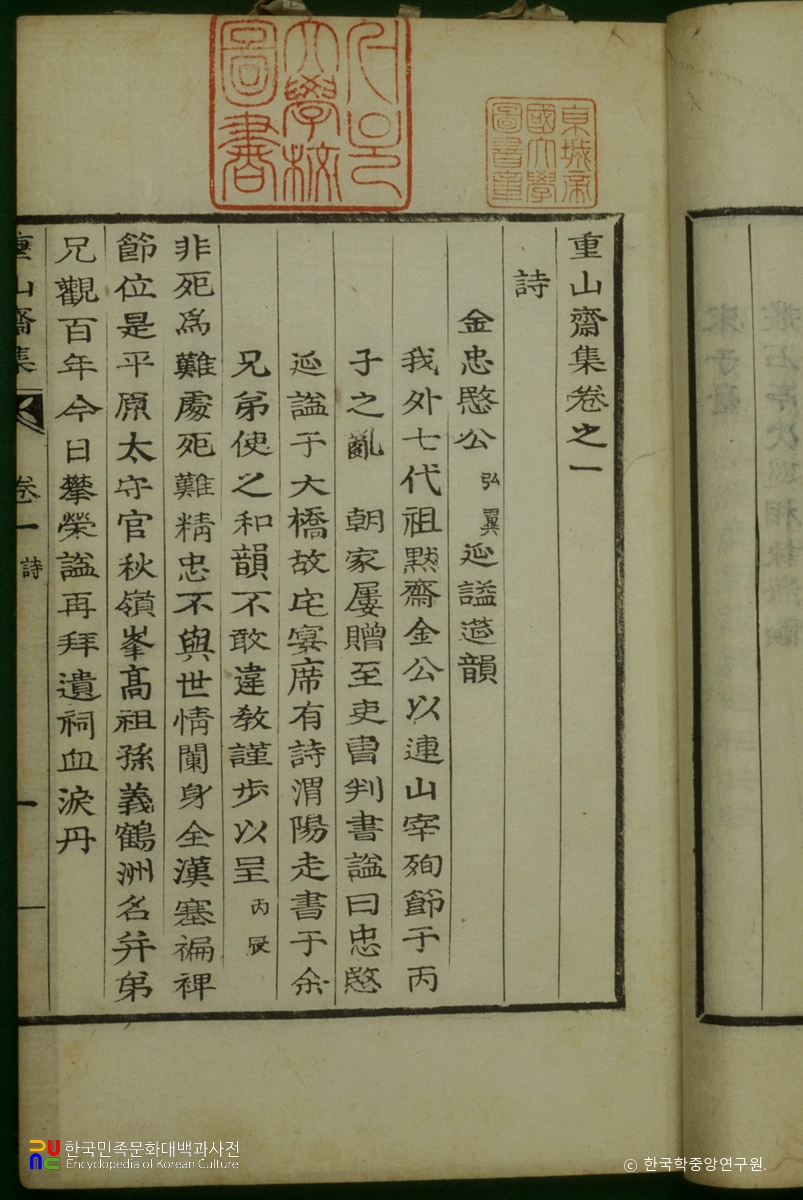 重山齋集卷之一
詩
金忠愍公弘翼延謚宴韻
我外七代祖默齋金公以連山宰殉節于丙
子之亂 朝家屢贈至吏曹判書謚曰忠愍
延謚于大橋故宅宴席有詩渭陽走書于余
兄弟使之和韻不敢違敎謹步以呈丙辰
非死爲難處死難精忠不與世情闌身全漢塞褊裨
節位是平原太守官秋嶺峯高祖孫義鶴洲名并弟
兄觀百年今日攀榮謚再拜遺祠血淚丹
重山齋集 卷一 詩 一
京城帝
國大學
圖書章
大學校
圖書
한국민족문화대백과사전
Encyclopedia of Korean Culture
ⓒ 한국학중앙연구원.